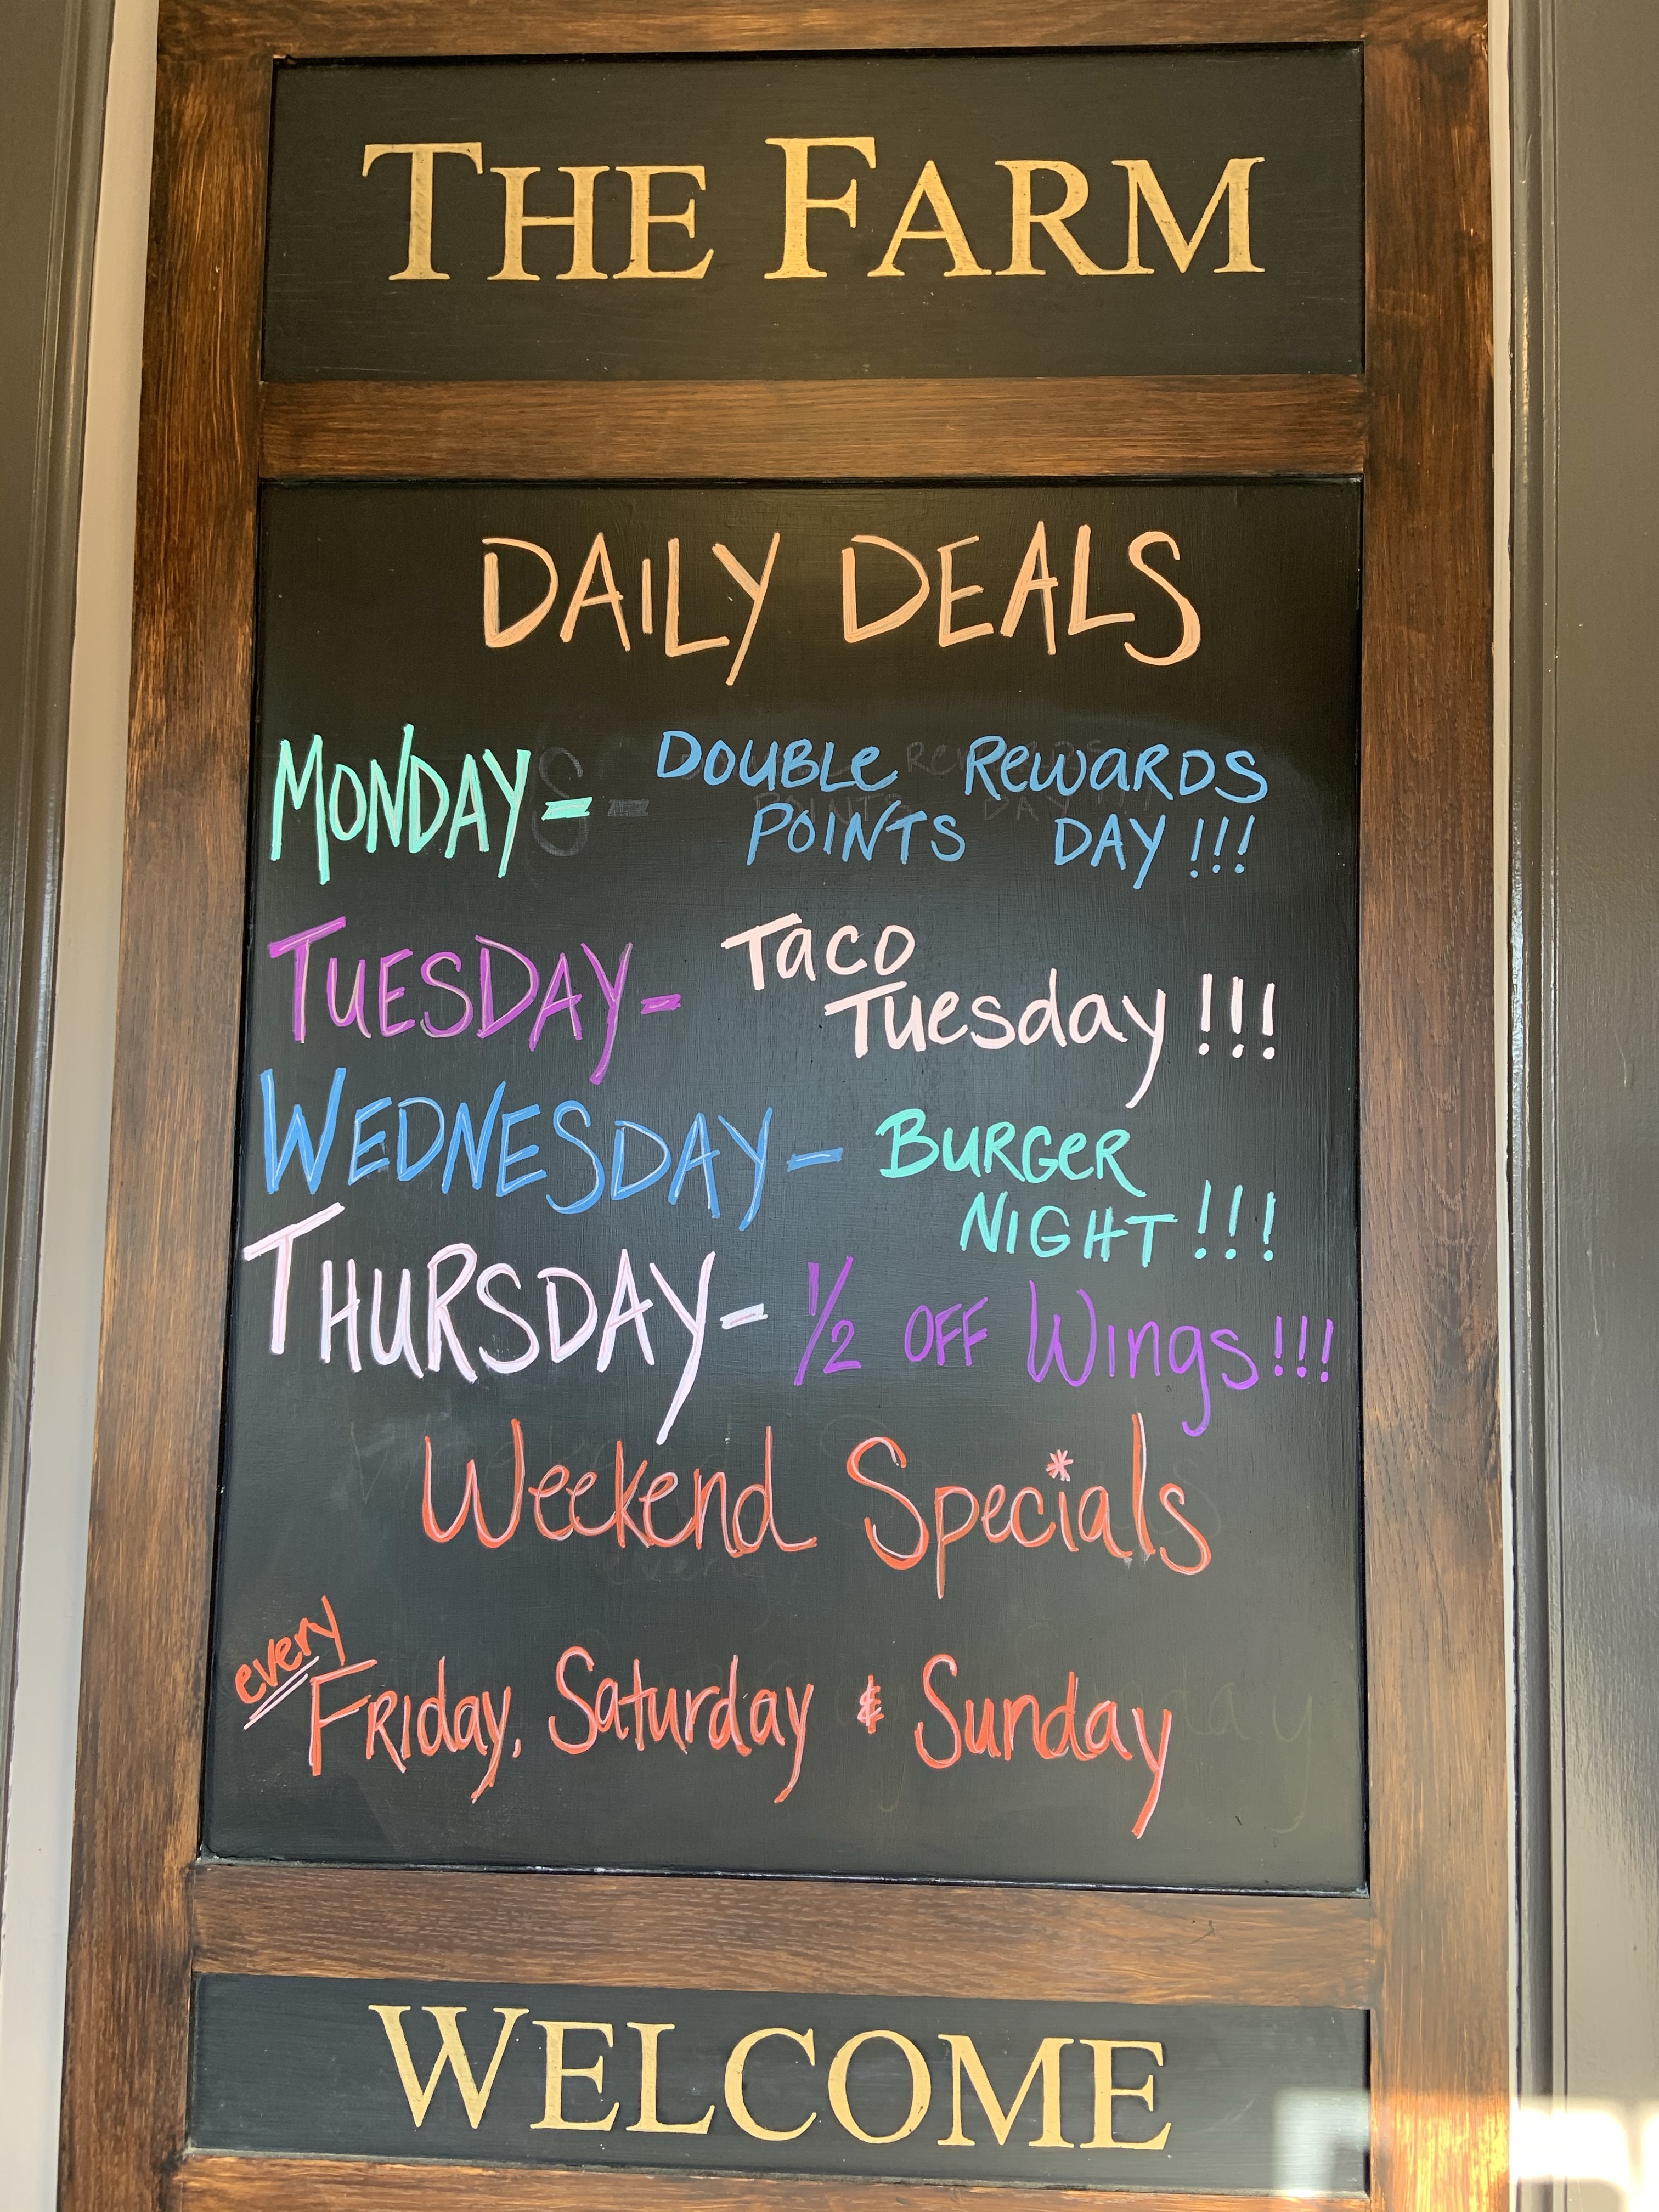 THE FARM
DAILY DEALS
MONDAY - DOUBLE REWARDS
POINTS DAY!!!
TUESDAY - Taco
Tuesday!!!
WEDNESDAY - BURGER
NIGHT!!!
THURSDAY - 1/2 OFF Wings!!!
Weekend Specials
every
Friday, Saturday & Sunday
WELCOME